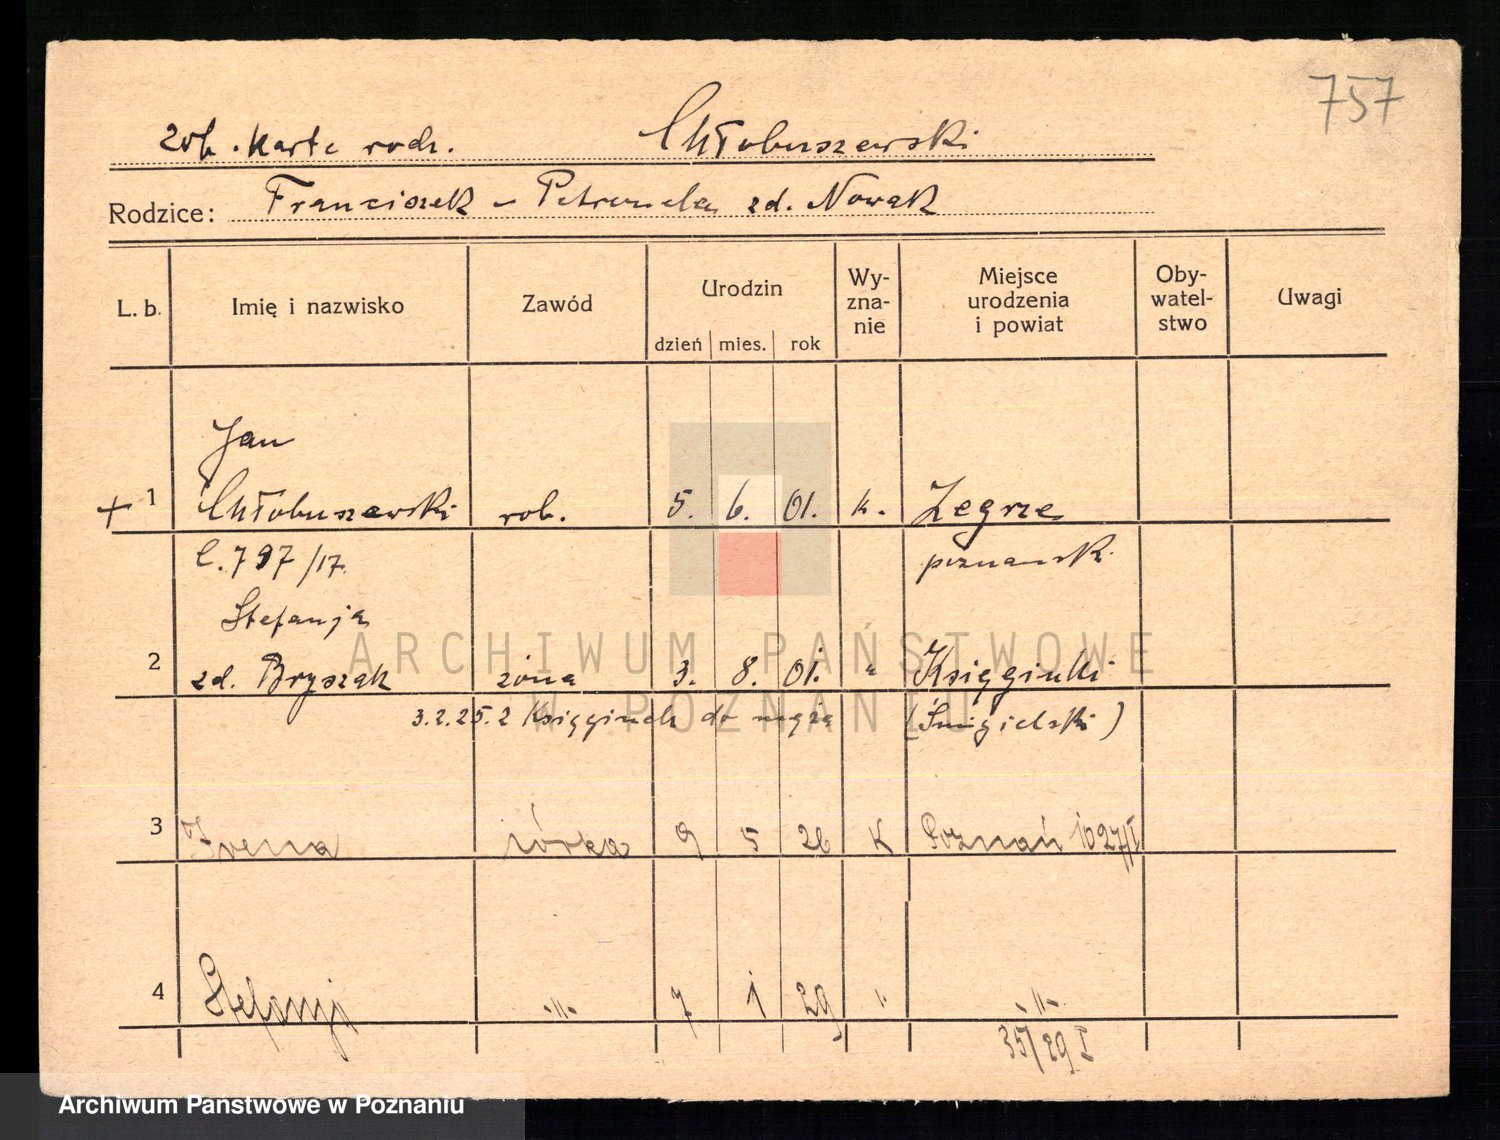 757
zob. kartę rodz. Chłobuszewski
Rodzice: Franciszek - Petronela zd. Nowak
L. b. Imię i nazwisko Zawód Urodzin dzień mies. rok Wy-zna-nie Miejsce urodzenia i powiat Oby-watel-stwo Uwagi
Jan
+ 1 Chłobuszewski rob. 5. 6. 01. k. Żegrze
C. 797/17. poznańsk.
Stefanja
2 zd. Bryszak żona 3. 8. 01. " Księginki
3.2.25. z Księginek do męża (Śmigielski)
3 Irena córka 9 5 26 K Poznań 1027/I
4 Stefanja -"- 7 1 29 " -"-
35/29 I
ARCHIWUM PAŃSTWOWE
W POZNANIU
Archiwum Państwowe w Poznaniu